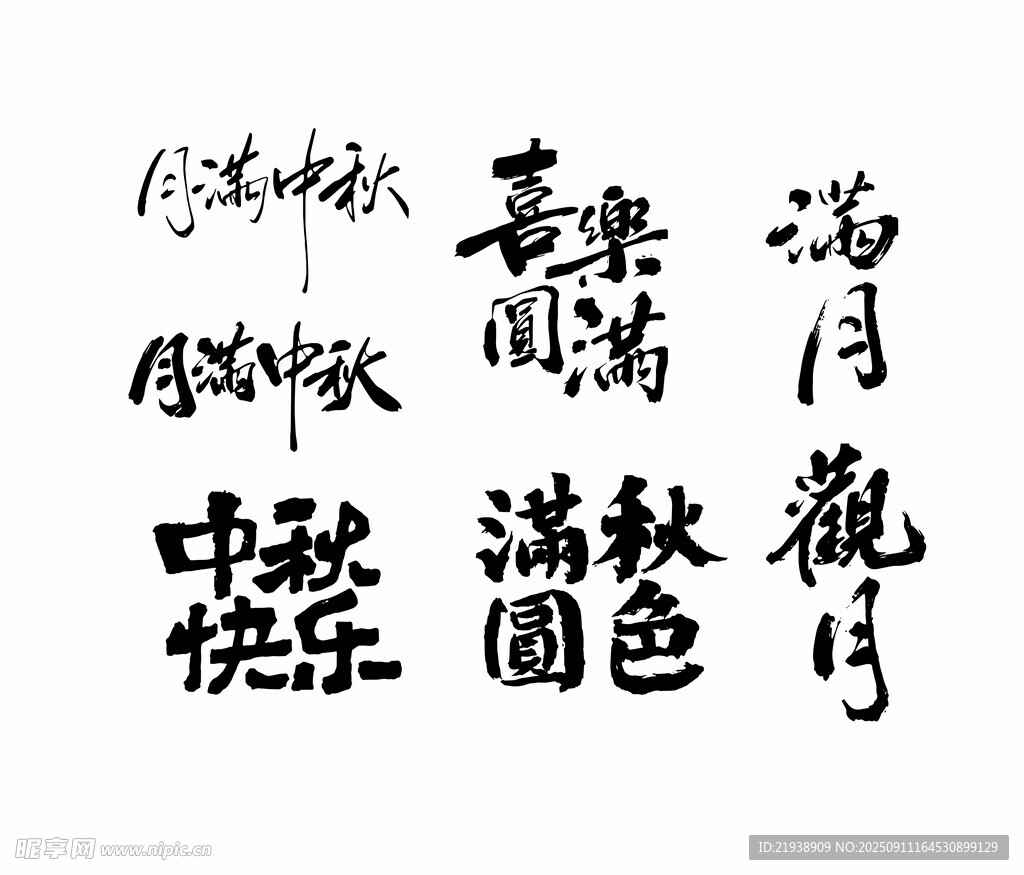 月满中秋
月满中秋
中秋
快乐
喜樂
圓滿
滿秋
圓色
满月
觀月
昵享网 www.nipic.cn
ID:21938909 NO:20250911164530899129